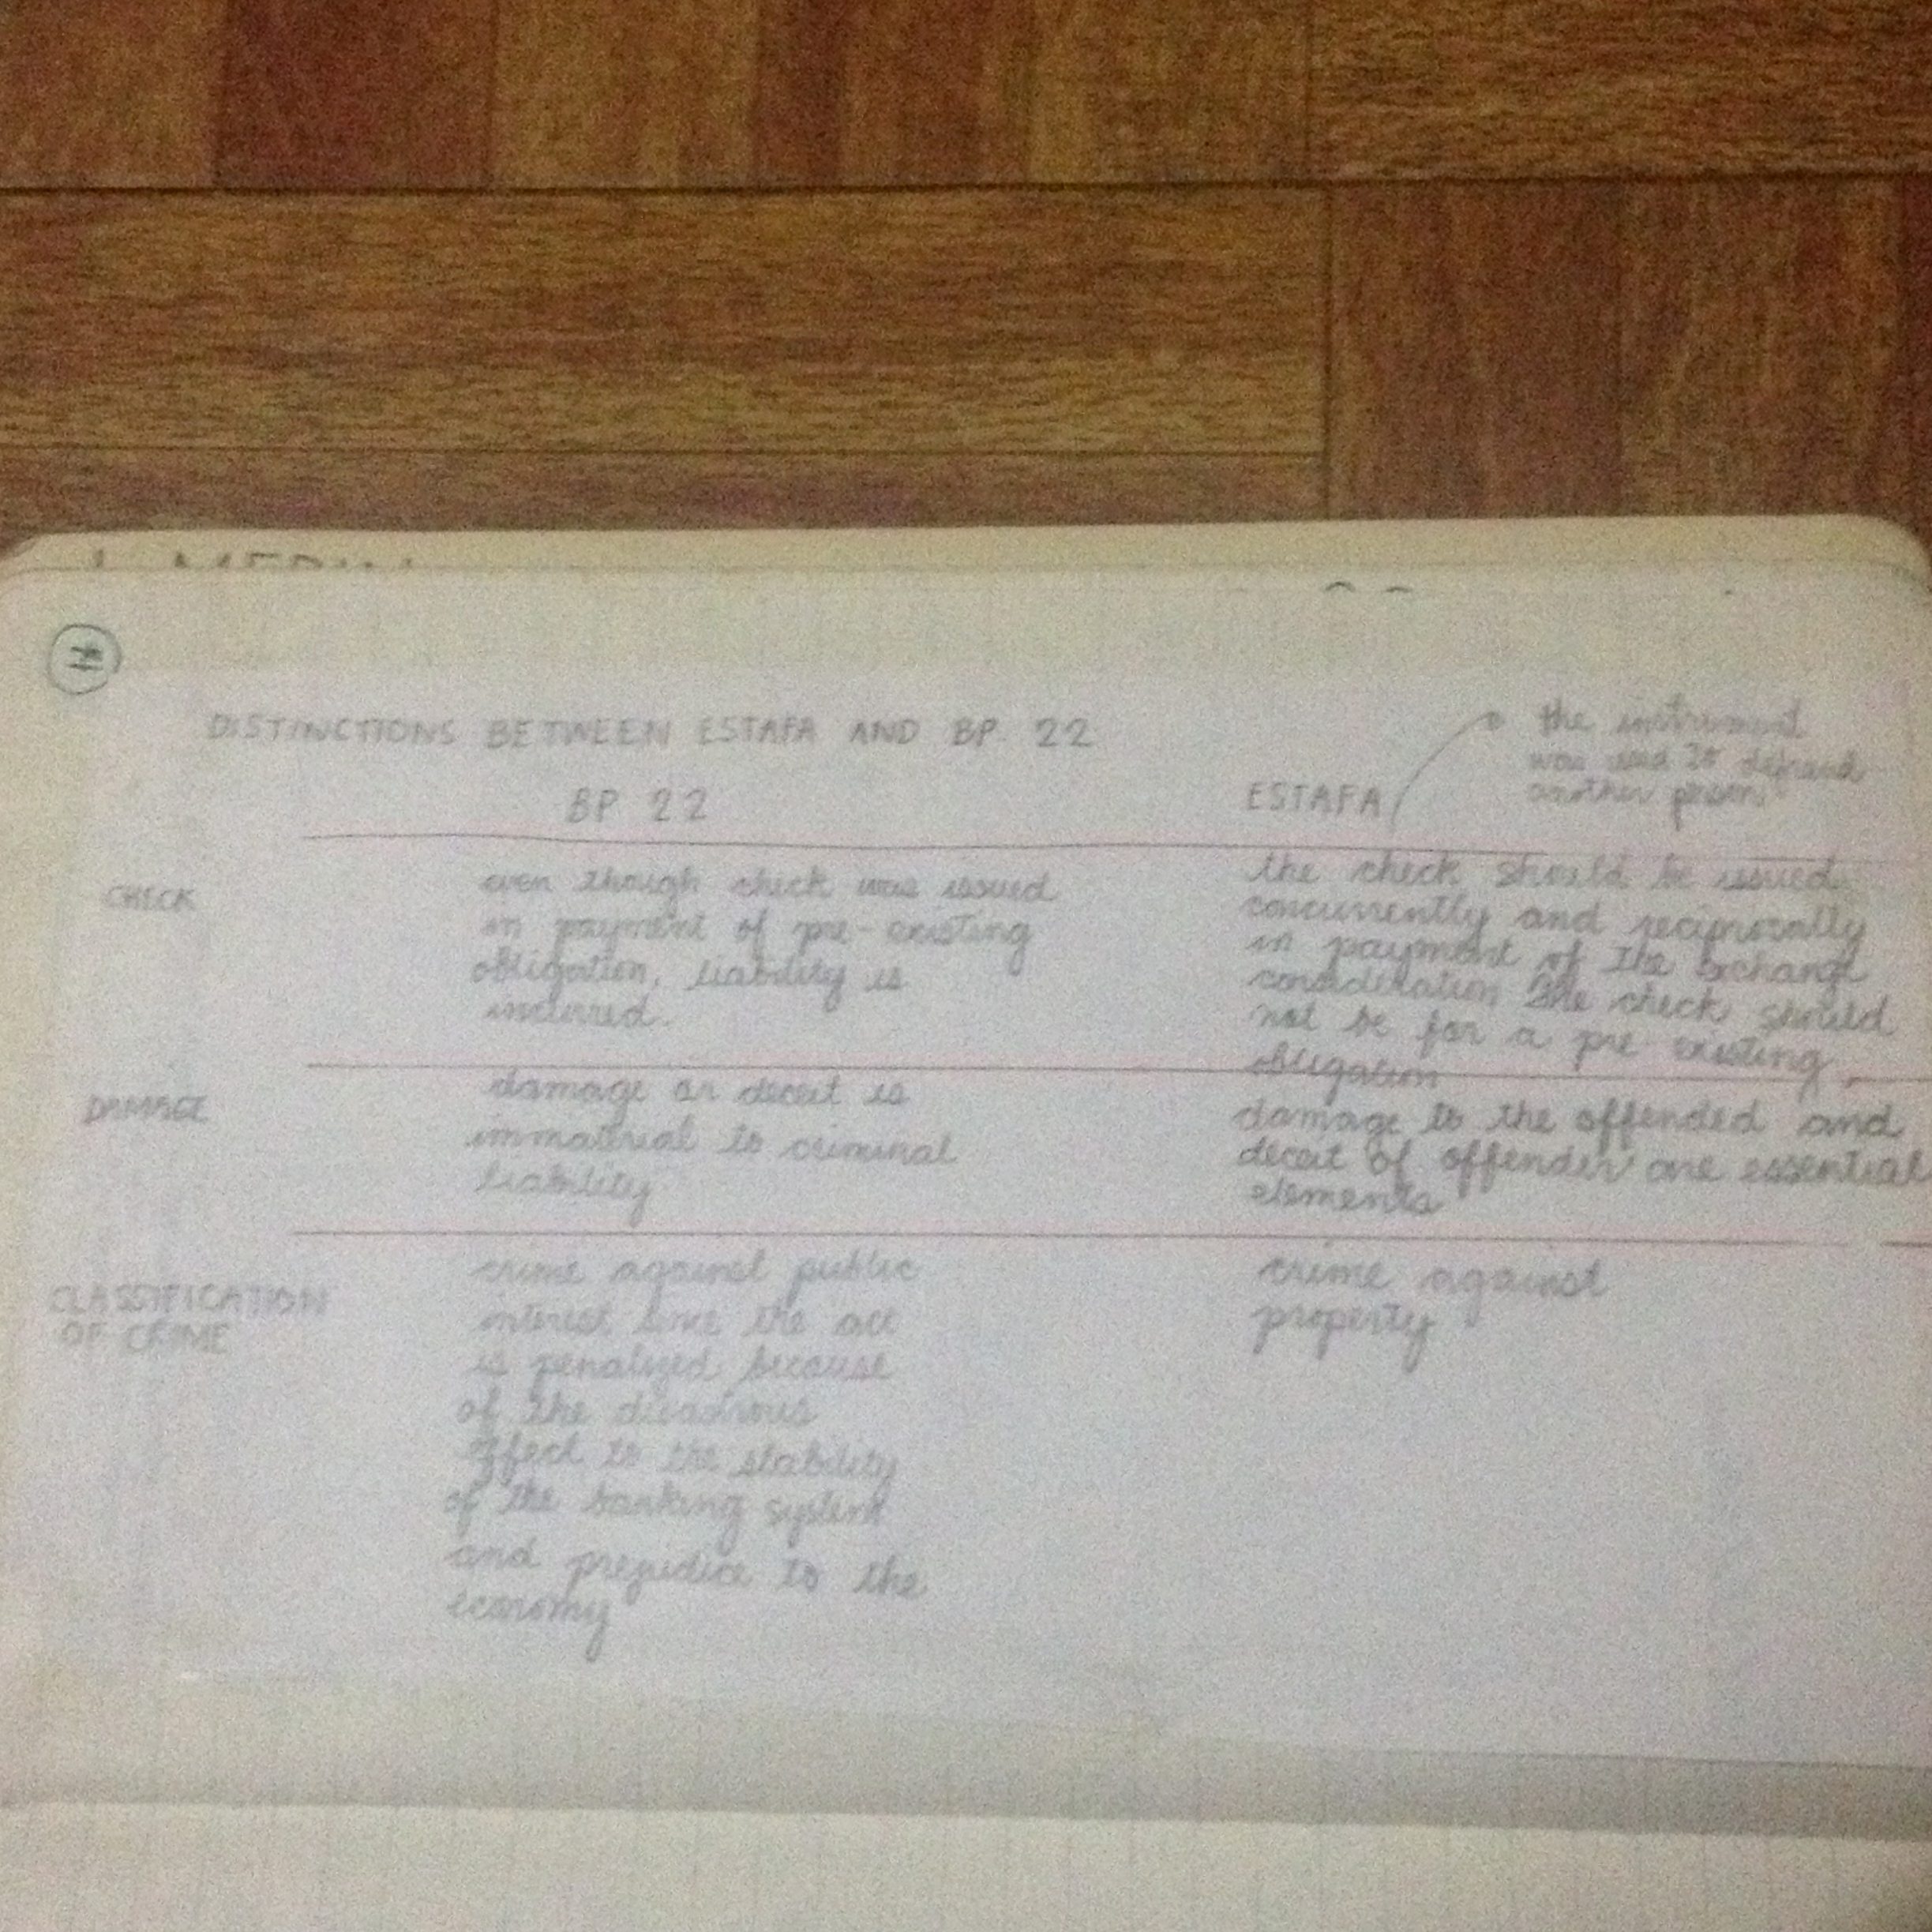 DISTINCTIONS BETWEEN ESTAFA AND BP. 22
the instrument
was used to defraud
another person.
BP 22
ESTAFA
CHECK
even though check was issued
in payment of pre-existing
obligation, liability is
incurred.
the check should be issued
concurrently and reciprocally
in payment of the exchange
consideration the check should
not be for a pre existing
obligation
DAMAGE
damage or deceit is
immaterial to criminal
liability
damage to the offended and
deceit of offender are essential
elements
CLASSIFICATION
OF CRIME
crime against public
interest since the act
is penalized because
of the disastrous
effect to the stability
of the banking system
and prejudice to the
economy
crime against
property